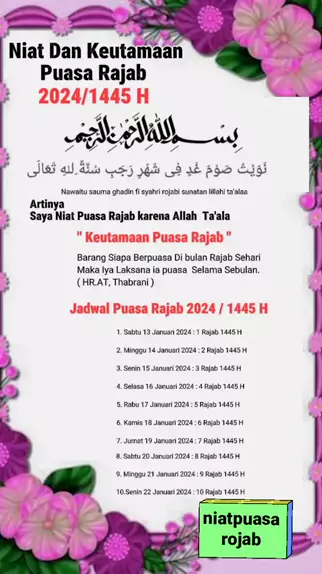 Niat Dan Keutamaan
Puasa Rajab
2024/1445 H
بِسْمِ اللهِ الرَّحْمٰنِ الرَّحِيْمِ
نَوَيْتُ صَوْمَ غَدٍ فِى شَهْرِ رَجَبٍ سُنَّةً لِلهِ تَعَالَى
Nawaitu sauma ghadin fi syahri rojabi sunatan lillahi ta'alaa
Artinya
Saya Niat Puasa Rajab karena Allah Ta'ala
" Keutamaan Puasa Rajab "
Barang Siapa Berpuasa Di bulan Rajab Sehari
Maka Iya Laksana ia puasa Selama Sebulan.
( HR.AT, Thabrani )
Jadwal Puasa Rajab 2024 / 1445 H
1. Sabtu 13 Januari 2024 : 1 Rajab 1445 H
2. Minggu 14 Januari 2024 : 2 Rajab 1445 H
3. Senin 15 Januari 2024 : 3 Rajab 1445 H
4. Selasa 16 Januari 2024 : 4 Rajab 1445 H
5. Rabu 17 Januari 2024 : 5 Rajab 1445 H
6. Kamis 18 Januari 2024 : 6 Rajab 1445 H
7. Jumat 19 Januari 2024 : 7 Rajab 1445 H
8. Sabtu 20 Januari 2024 : 8 Rajab 1445 H
9. Minggu 21 Januari 2024 : 9 Rajab 1445 H
10.Senin 22 Januari 2024 : 10 Rajab 1445 H
niatpuasa
rojab